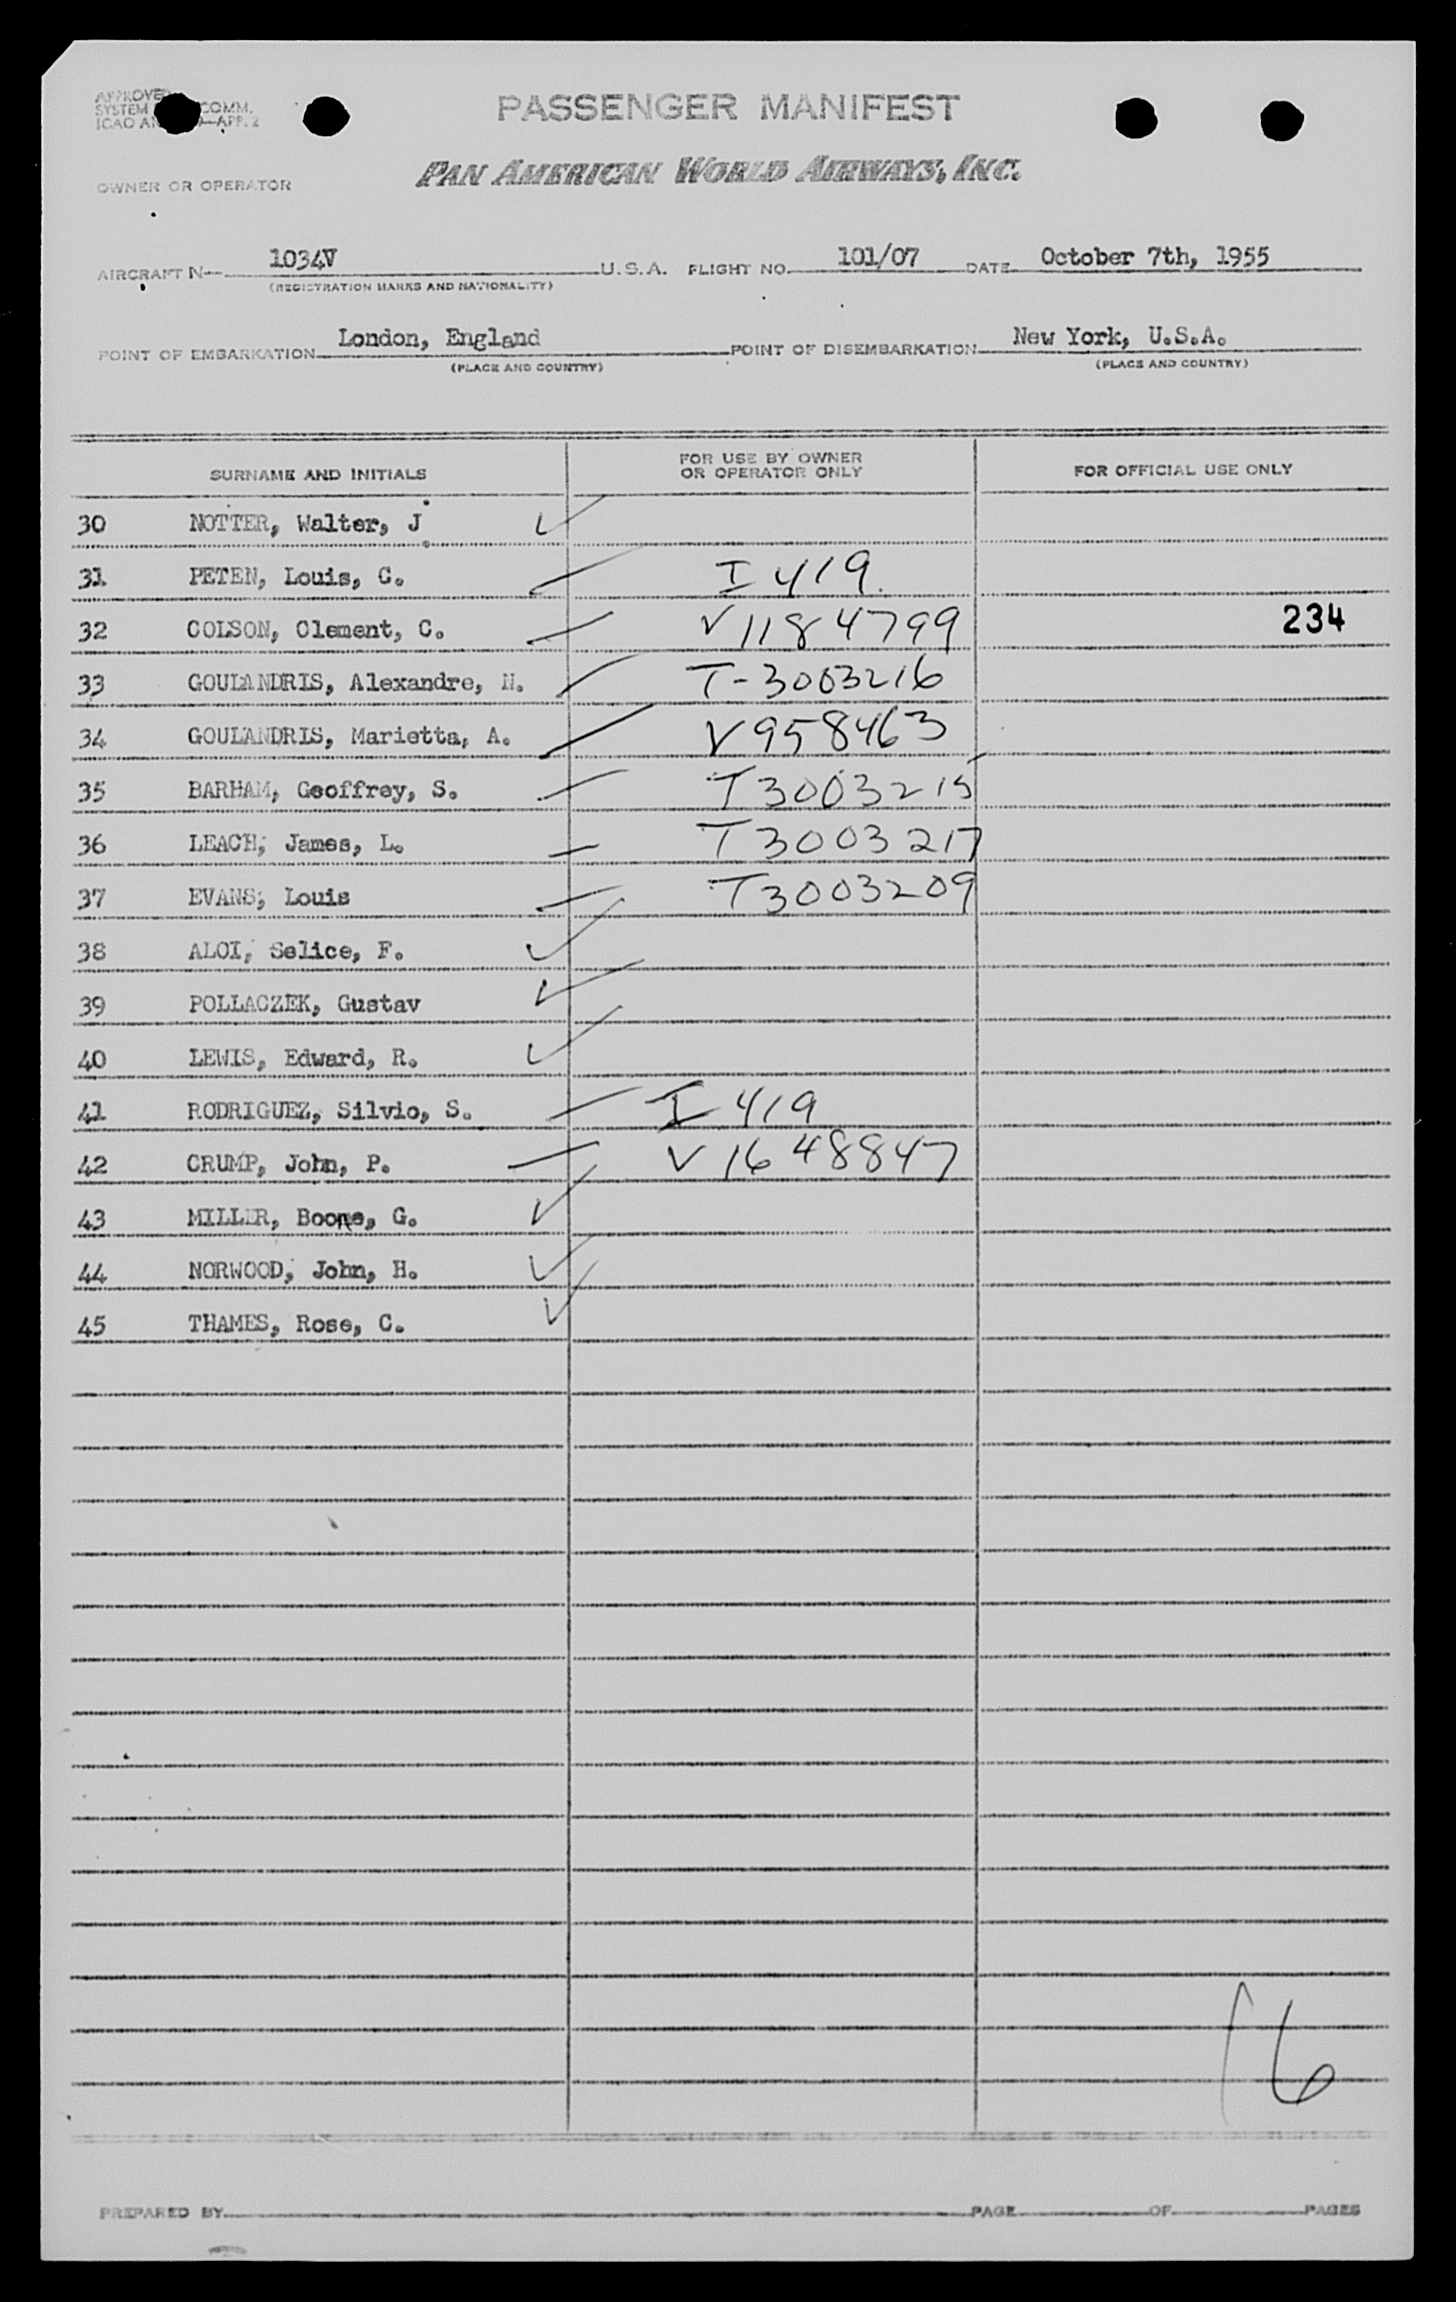 APPROVED
SYSTEM COMM.
ICAO AN —APP. 2
PASSENGER MANIFEST
OWNER OR OPERATOR PAN AMERICAN WORLD AIRWAYS, INC.
AIRCRAFT N— 1034V U.S.A. FLIGHT NO. 101/07 DATE October 7th, 1955
(REGISTRATION MARKS AND NATIONALITY)
POINT OF EMBARKATION London, England POINT OF DISEMBARKATION New York, U.S.A.
(PLACE AND COUNTRY) (PLACE AND COUNTRY)
SURNAME AND INITIALS FOR USE BY OWNER OR OPERATOR ONLY FOR OFFICIAL USE ONLY
30 NOTTER, Walter, J ✓
31 PETEN, Louis, C. I 419.
32 COLSON, Clement, C. V1184799 234
33 GOULANDRIS, Alexandre, N. T-3003216
34 GOULANDRIS, Marietta, A. V958463
35 BARHAM, Geoffrey, S. T3003215
36 LEACH, James, L. T3003217
37 EVANS, Louis T3003209
38 ALOI, Selice, F. ✓
39 POLLACZEK, Gustav ✓
40 LEWIS, Edward, R. ✓
41 RODRIGUEZ, Silvio, S. I 419
42 CRUMP, John, P. V1648847
43 MILLER, Boone, G. ✓
44 NORWOOD, John, H. ✓
45 THAMES, Rose, C. ✓
16
PREPARED BY PAGE OF PAGES